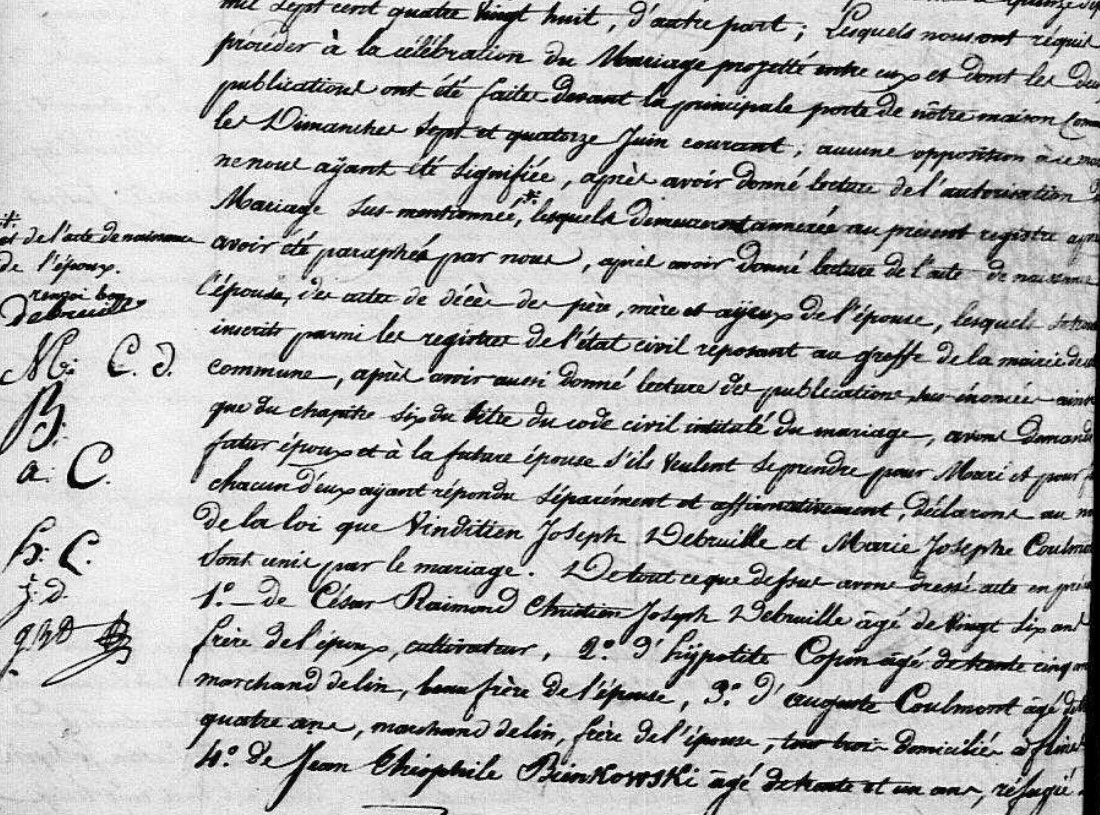 mil sept cent quatre vingt huit, d'autre part ; Lesquels nous ont requis
procéder à la célébration du Mariage projetté entre eux et dont les
publications ont été faites devant la principale porte de nôtre maison
les Dimanches sept et quatorze Juin courant ; aucune opposition à
ne nous aÿant été signifiée, après avoir donné lecture de l'autorisation
Mariage sus-mentionnée,* lesquels demeureront annexés au présent registre
avoir été paraphés par nous, après avoir donné lecture de l'acte de naissance
l'épouse, des actes de décès des père, mère et ayeux de l'épouse, lesquels
inscrits parmi les registres de l'état civil reposant au greffe de la mairie de
commune, après avoir aussi donné lecture des publications sus-énoncées
que du chapitre six du titre du code civil intitulé du mariage, avons
futur époux et à la future épouse s'ils veulent se prendre pour Mari et pour
chacun d'eux aÿant répondu séparément et affirmativement, déclarons au
de la loi que Vinditien Joseph Debruille et Marie Josephe
sont unis par le mariage. De tout ce que dessus avons dressé acte en
1.º de César Raimond Chrétien Joseph Debruille âgé de vingt six ans
frère de l'époux, cultivateur, 2.º d'hÿpolite Copin âgé de trente cinq ans
marchand de lin, beau frère de l'épouse, 3.º d'auguste Coulmont âgé
quatre ans, marchand de lin, frère de l'épouse, tous trois domiciliés à flines
4.º de Jean Théophile Bienkowski âgé de trente et un ans, réfugié
*
et de l'acte de naissance
de l'époux.
renvoi bon
Debruille
M: C. d.
B:
a: C.
h: C.
j: d.